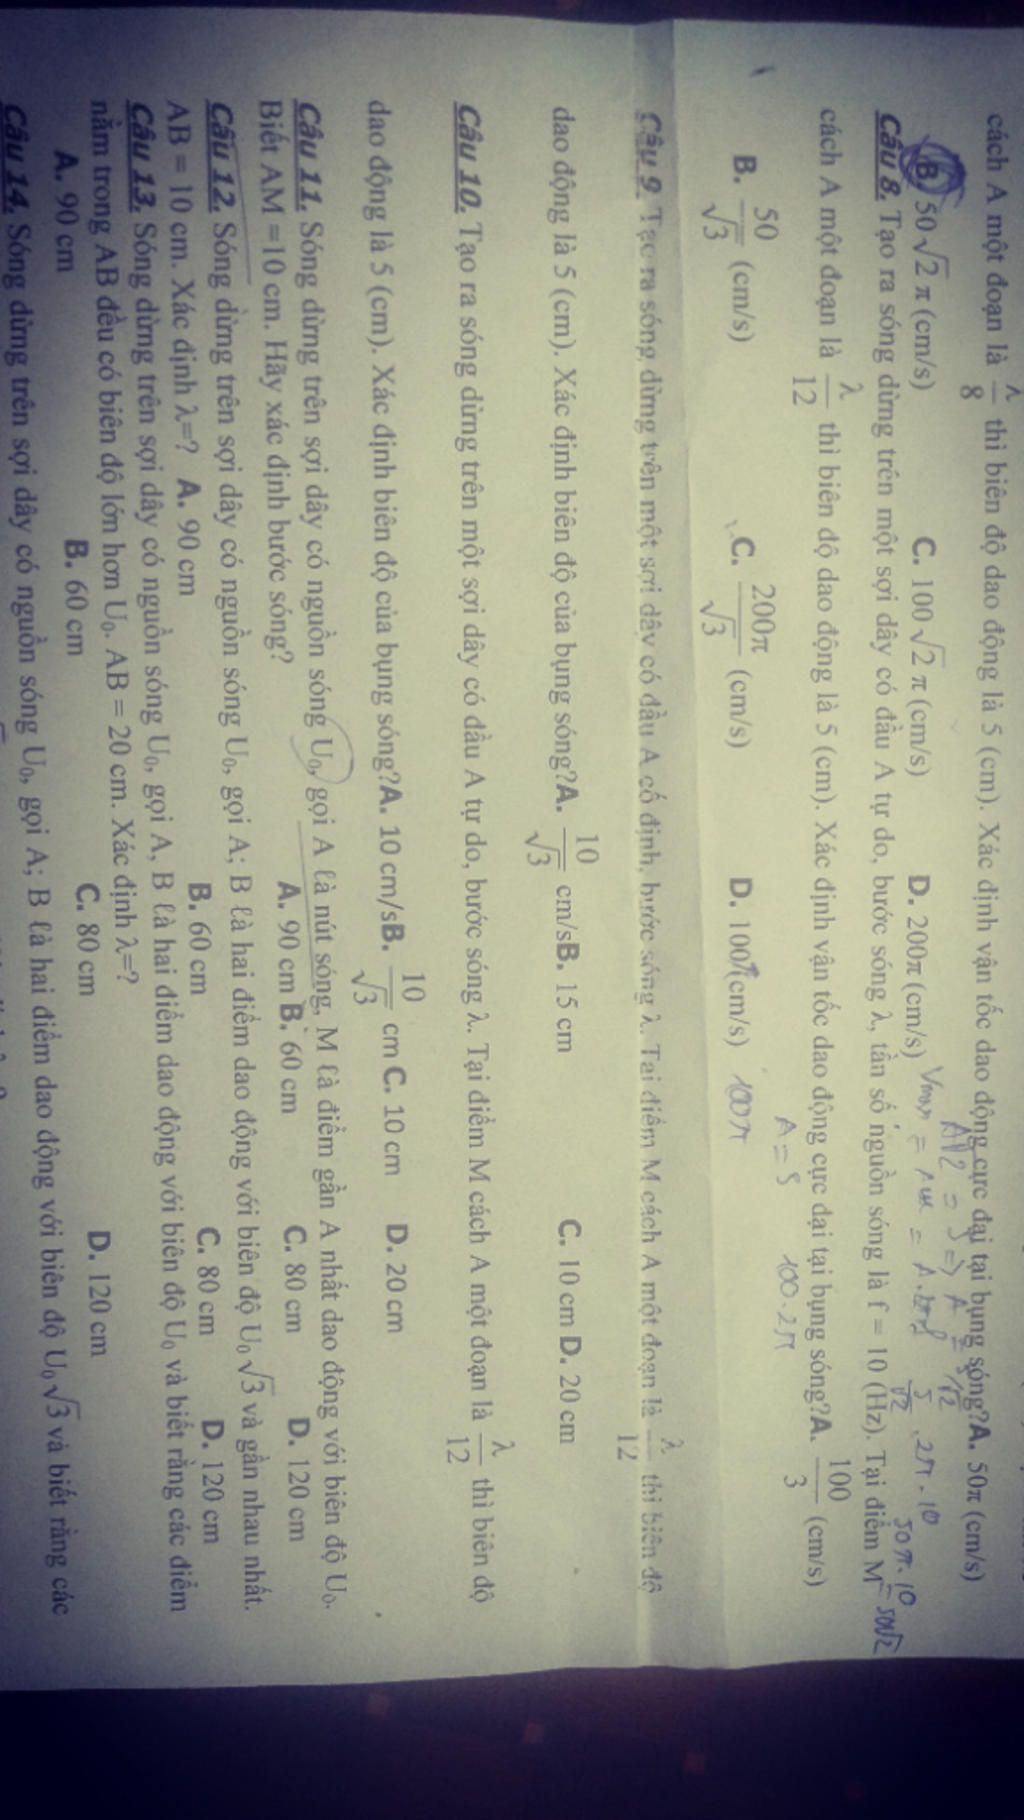 cách A một đoạn là λ/8 thì biên độ dao động là 5 (cm). Xác định vận tốc dao động cực đại tại bụng sóng?A. 50π (cm/s)
B. 50√2 π (cm/s) C. 100√2 π (cm/s) D. 200π (cm/s)
A√2 = 5 => A = 5/√2
Vmax = Aω =
Câu 8. Tạo ra sóng dừng trên một sợi dây có đầu A tự do, bước sóng λ, tần số nguồn sóng là f = 10 (Hz). Tại điểm M
cách A một đoạn là λ/12 thì biên độ dao động là 5 (cm). Xác định vận tốc dao động cực đại tại bụng sóng?A. 100/3 (cm/s)
A = 5 100.2π
B. 50/√3 (cm/s) C. 200π/√3 (cm/s) D. 100π(cm/s) 100π
Câu 9. Tạo ra sóng dừng trên một sợi dây có đầu A cố định, bước sóng λ. Tại điểm M cách A một đoạn là λ/12 thì biên độ
dao động là 5 (cm). Xác định biên độ của bụng sóng?A. 10/√3 cm/sB. 15 cm C. 10 cm D. 20 cm
Câu 10. Tạo ra sóng dừng trên một sợi dây có đầu A tự do, bước sóng λ. Tại điểm M cách A một đoạn là λ/12 thì biên độ
dao động là 5 (cm). Xác định biên độ của bụng sóng?A. 10 cm/sB. 10/√3 cm C. 10 cm D. 20 cm
Câu 11. Sóng dừng trên sợi dây có nguồn sóng U₀, gọi A là nút sóng, M là điểm gần A nhất dao động với biên độ U₀.
Biết AM =10 cm. Hãy xác định bước sóng? A. 90 cm B. 60 cm C. 80 cm D. 120 cm
Câu 12. Sóng dừng trên sợi dây có nguồn sóng U₀, gọi A; B là hai điểm dao động với biên độ U₀√3 và gần nhau nhất.
AB = 10 cm. Xác định λ=? A. 90 cm B. 60 cm C. 80 cm D. 120 cm
Câu 13. Sóng dừng trên sợi dây có nguồn sóng U₀, gọi A, B là hai điểm dao động với biên độ U₀ và biết rằng các điểm
nằm trong AB đều có biên độ lớn hơn U₀. AB = 20 cm. Xác định λ=?
A. 90 cm B. 60 cm C. 80 cm D. 120 cm
Câu 14. Sóng dừng trên sợi dây có nguồn sóng U₀, gọi A; B là hai điểm dao động với biên độ U₀√3 và biết rằng các